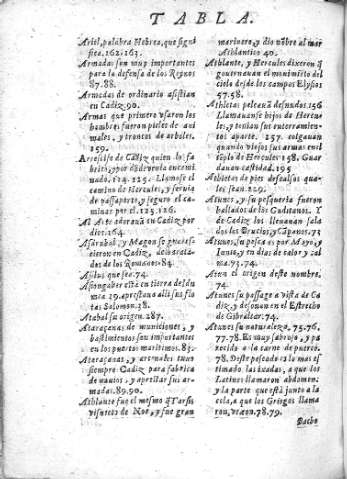 TABLA.
Ariel, palabra Hebrea, que signi
fica. 162. 163.
Armadas son muy importantes
para la defensa de los Reynos
87. 88.
Armadas de ordinario asistian
en Cadiz. 90.
Armas que primero vsaron los
hombres, fueron pieles de ani
males, y troncos de arboles.
159.
Arrecife de Cadiz quien lo fa
bricò, y por donde venia encami
nado. 124. 125. Llamose el
camino de Hercules, y servia
de passaporte, y seguro el ca
minar por el. 125. 126.
Al Arte adorauã en Cadiz por
dios. 164.
Asdrubal, y Magon se
en Cadiz, de
de los Romanos. 84.
Asylos que sea. 74.
Asiongaber està en tierra de
29. apresto alli sus flo
tas Salomon. 28.
Atabal su origen. 287.
Ataraçanas de municiones, y
bastimentos son importantes
en los puertos maritimos. 83.
Ataraçanas, y arsenales tuuo
siempre Cadiz para fabrica
de nauios, y aprestar sus ar
madas. 89. 90.
Athlante fue el mesmo q̃ Tarsis
visnieto de Noe, y fue gran
marinero, y dio nõbre al mar
Athlantico 40.
Athlante, y Hercules dixeron q̃
gouernauan el mouimiẽto del
cielo desde los campos Elysios
57. 58.
Athletas peleauã desnudos. 156
Llamauanse hijos de Hercu
les, y tenian sus enterramien-
tos aparte. 157. colgauan
quando viejos sus armas en el
tẽplo de Hercules 158. Guar
dauan castidad. 195
Athletas de pies descalços qua-
les sean. 229.
Atunes, y su pesqueria fueron
hallados de los Gaditanos. Y
de Cadiz los lleuauan sala
dos los Brucios, y Cãpanos. 73
Atunes, su pesca es por Mayo, y
Junio, y en dias de calor y cal
ma. 73. 74.
Atun el origen deste nombre.
74.
Atunes su passage a vista de Ca
diz, y desouan en el Estrecho
de Gibraltar. 74.
Atunes su naturaleza. 75. 76.
77. 78. Es muy sabroso, y pa
recido a la carne de puerco.
78. Deste pescado es lo mas es
timado las ixadas, a que los
Latinos llamaron abdomen:
y la parte que està junto a la
cola, a que los Griegos llama
ron, vraeon. 78. 79.
Bacho